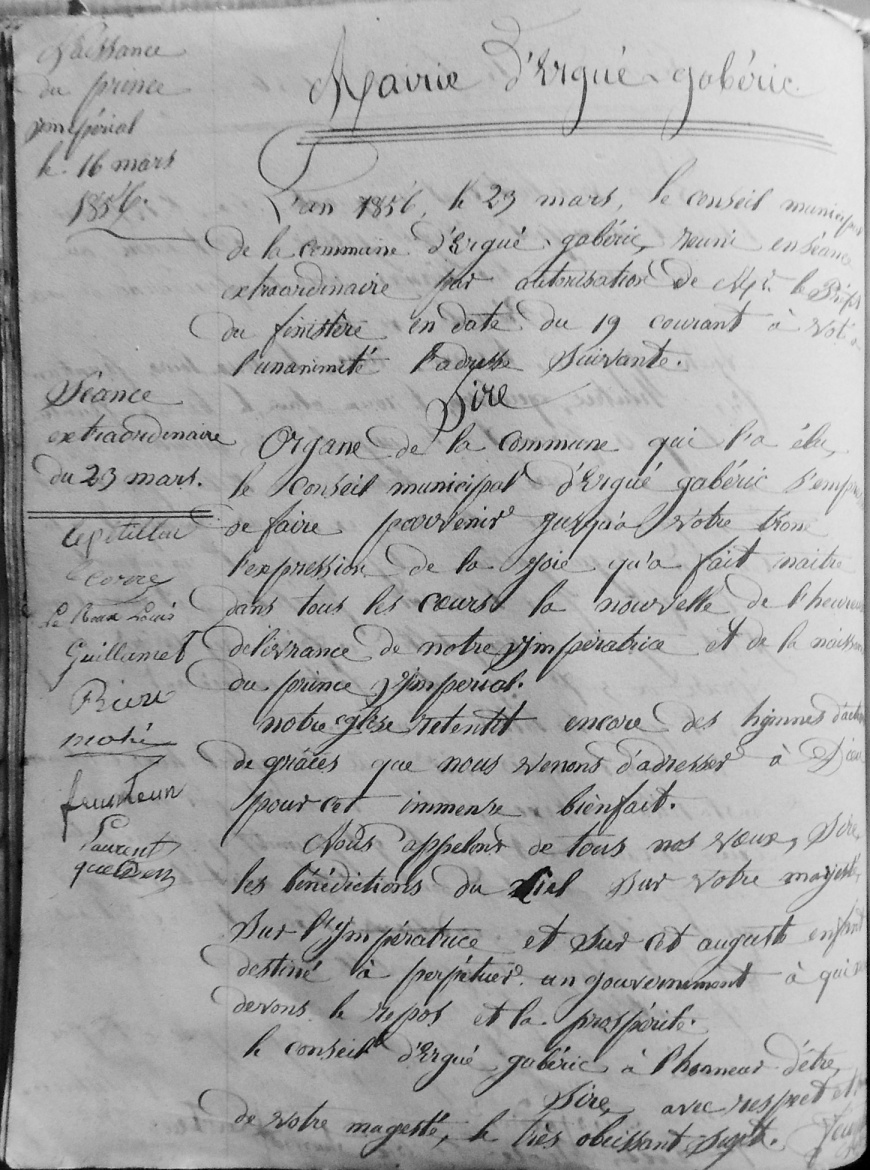 Naissance
du prince
ympérial
le 16 mars
1856.
Mairie d'Ergué-gabéric
L'an 1856, le 23 mars, le conseil municipal
de la commune d'Ergué-gabéric, reuni en séance
extraordinaire par autorisation de Mr. le Préf
du finistère en date du 19 courant à voté à
l'unanimité l'adresse suivante.
Séance
extraordinaire
du 23 mars.
Sire
Organe de la commune qui l'a élu,
le Conseil municipal d'Ergué gabéric s'empr
de faire parvenir jusqu'à votre trone
l'expression de la joie qu'a fait naitre
dans tous les cœurs la nouvelle de l'heureu
délivrance de notre ympératrice et de la naissan
du prince ympérial.
Le Roux Louis
Guillamet
Laurent
notre église retentit encore des hymnes d'action
de grâces que nous venons d'adresser à Dieu
pour cet immense bienfait.
Nous appelons de tous nos vœux, Sire,
les bénédictions du Ciel sur votre majesté,
sur l'ympératrice et sur cet auguste enfant
destiné à perpétuer un gouvernement à qui n
devons le repos et la prospérité.
le conseil d'Ergué gabéric à l'honneur d'être,
Sire, avec respect et
de votre magesté, le très obeissant sujet.